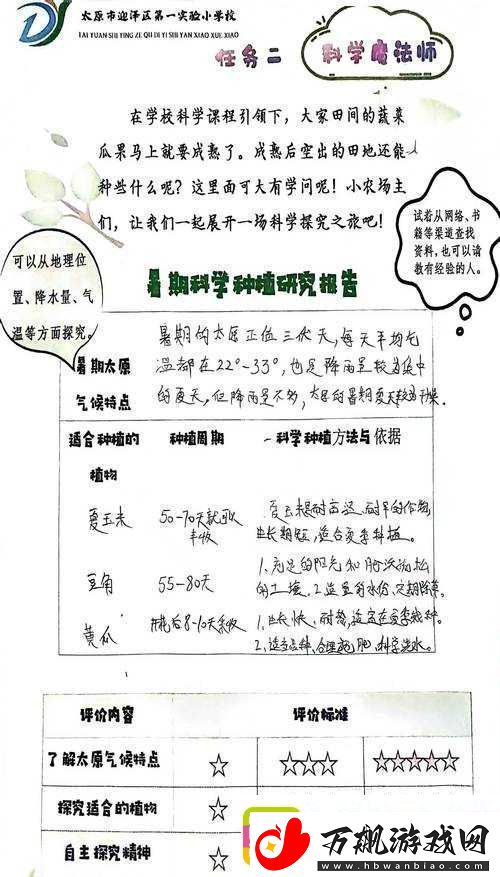 太原市迎泽区第一实验小学校
TAI YUAN SHI YING ZE QU DI YI SHI YAN XIAO XUE XIAO
任务二
科学魔法师
在学校科学课程引领下，大家田间的蔬菜
瓜果马上就要成熟了。成熟后空出的田地还能
种些什么呢？这里面可大有学问呢！小农场主
们，让我们一起展开一场科学探究之旅吧！
试着从网络、书
籍等渠道查找
资料，也可以请
教有经验的人。
可以从地理位
置、降水量、气
温等方面探究。
暑期科学种植研究报告
暑期太原
气候特点
暑期的太原正值三伏天，每天平均气
温都在22°-33°，也是降雨量较为集中
的夏天，但降雨量不多，太原的暑期夏天较为干燥。
适合种植的
植物
种植周期
科学种植方法与依据
夏玉米
50-70天就可以
丰收
夏玉米是耐高温、耐旱的作物，
生长期短，适合夏季种植。
豆角
55-80天
1、充足的阳光和肥沃疏松
的土壤。2、适量的水份、定期除草。
黄瓜
开花后8-10天采收
1、生长快、耐热，适宜在夏季栽种。
2、适当品种、合理施肥、科学浇水。
评价内容
评价标准
了解太原气候特点
☆
☆☆☆
☆☆☆☆☆
探究适合的植物
☆
自主探究精神
☆
万飙游戏网
www.hbwanbiao.com